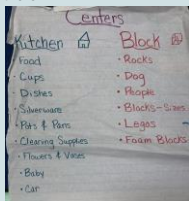 Centers
Kitchen
Food
Cups
Dishes
Silverware
Pots & Pans
Cleaning Supplies
Flowers & Vases
Baby
Car
Block
Rocks
Dog
People
Blocks-Sizes
Legos
Foam Blocks